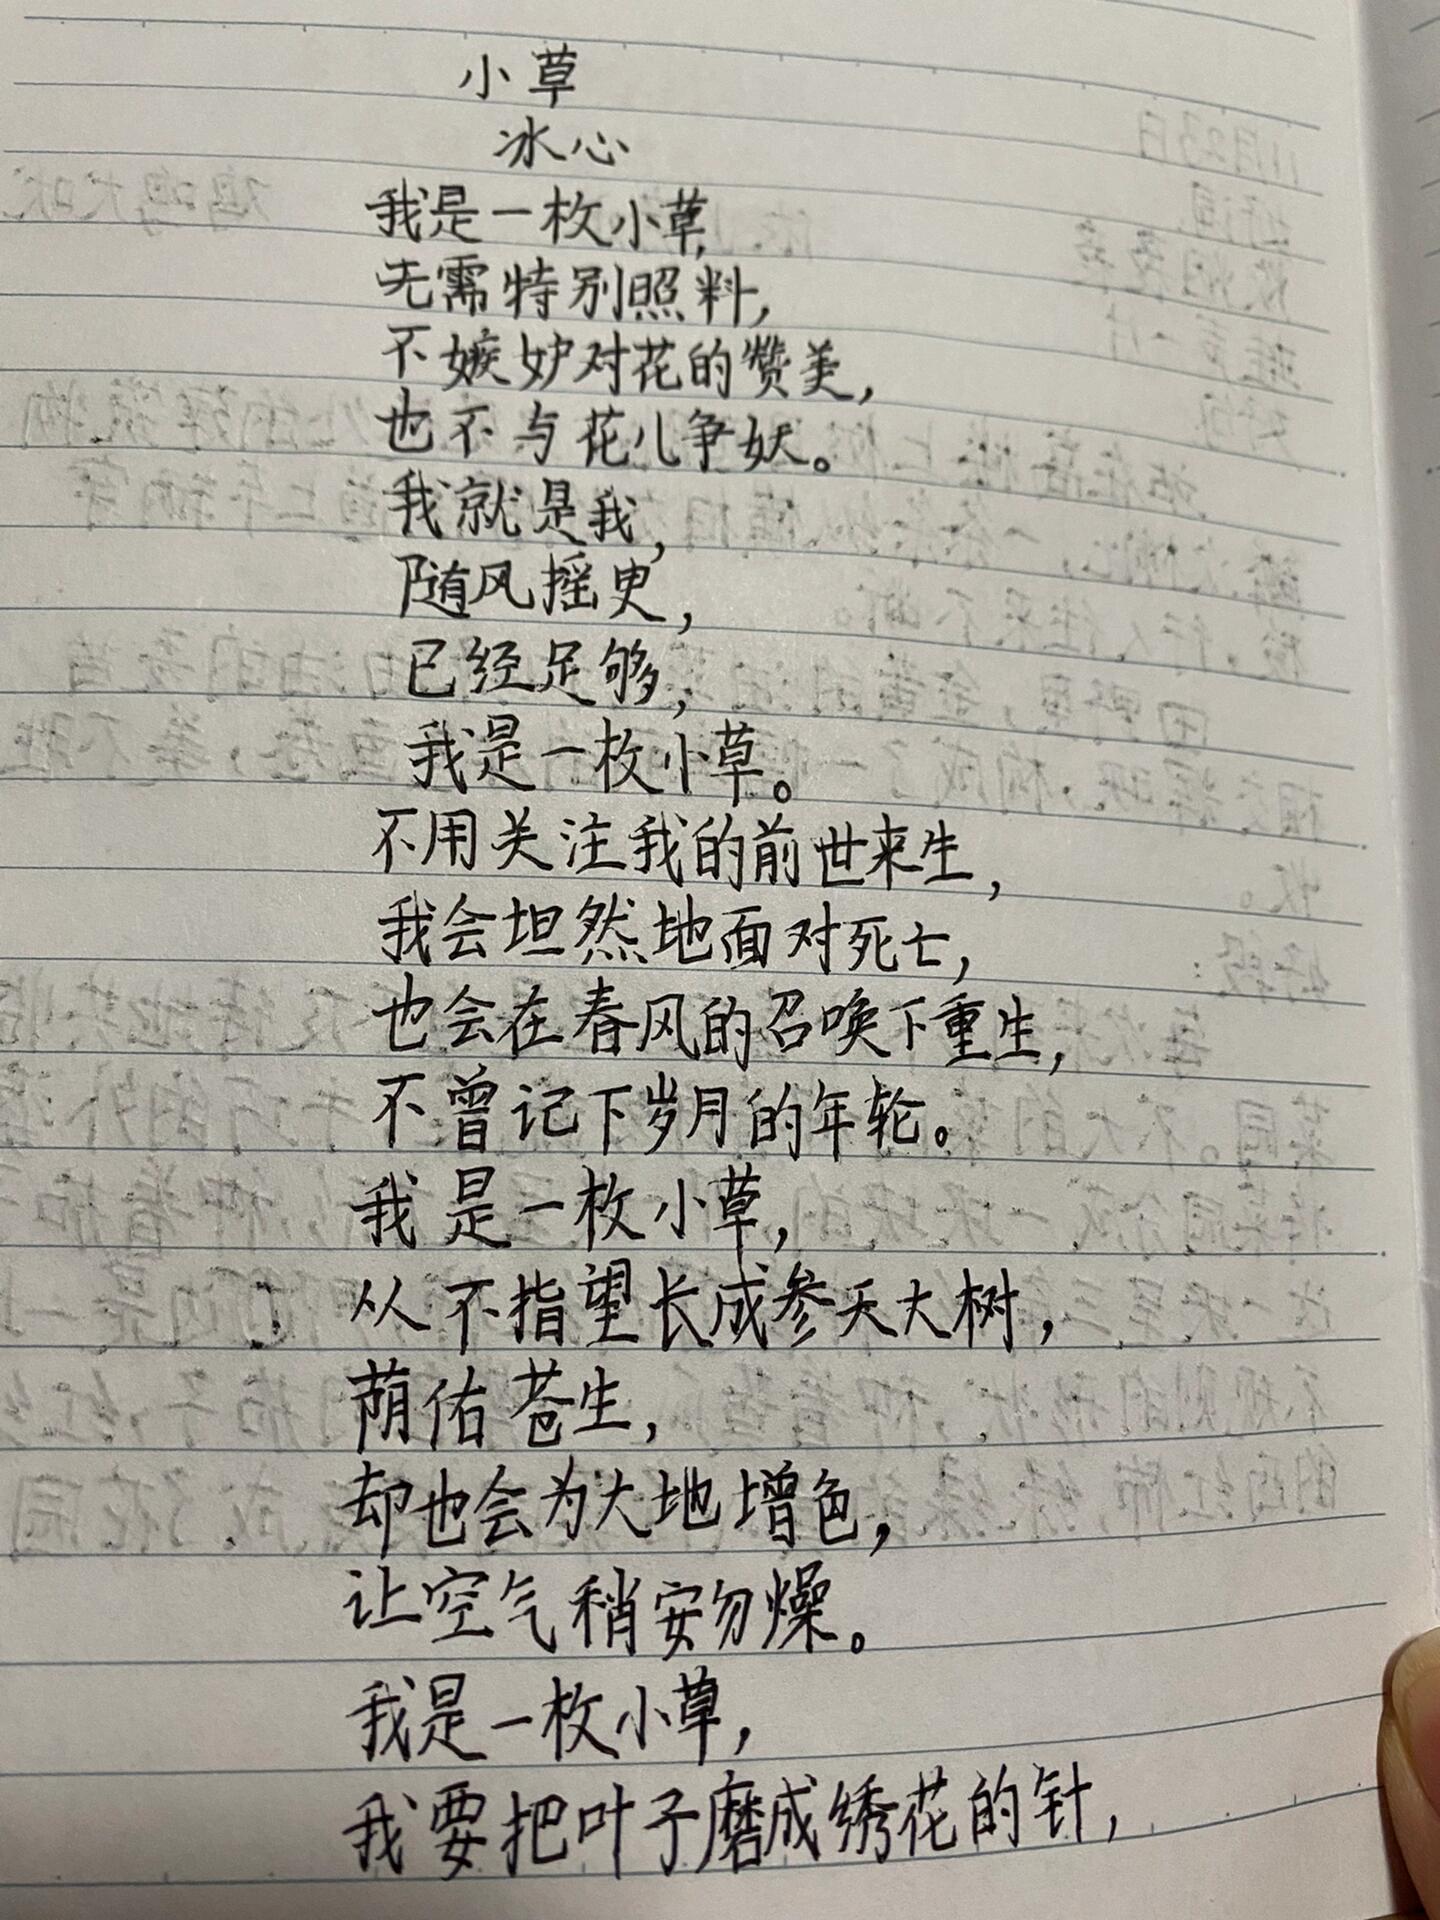 小草
冰心
我是一枚小草,
无需特别照料,
不嫉妒对花的赞美,
也不与花儿争妖。
我就是我,
随风摇曳,
已经足够,
我是一枚小草。
不用关注我的前世来生,
我会坦然地面对死亡,
也会在春风的召唤下重生,
不曾记下岁月的年轮。
我是一枚小草,
从不指望长成参天大树,
荫佑苍生,
却也会为大地增色,
让空气稍安勿燥。
我是一枚小草,
我要把叶子磨成绣花的针,